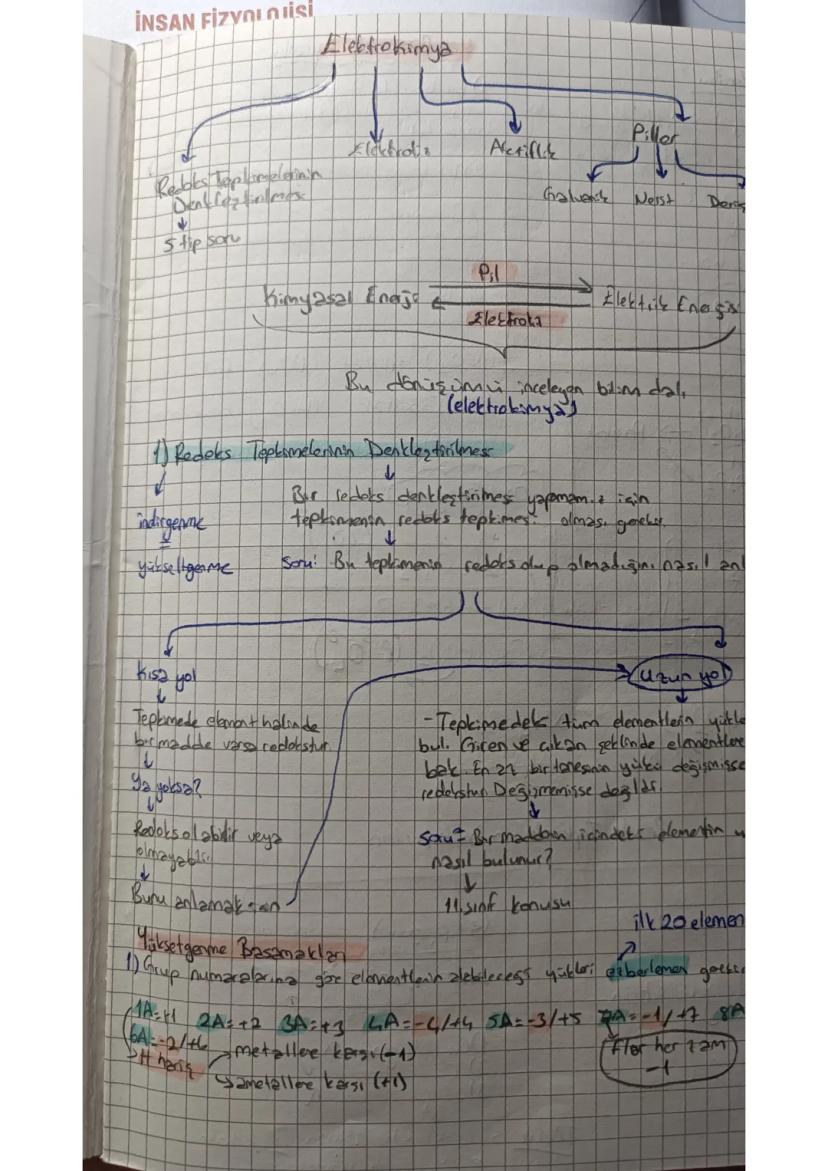 İNSAN FİZYOLOJİSİ
Elektrokimya
Elektroliz
Aktiflik
Piller
Redoks Tepkimelerinin
Denkleştirilmesi
5 tip soru
Galvanik Nerst Deriş
Pil
Kimyasal Enerji
Elektrik Enerjis
Elektroliz
Bu dönüşümü inceleyen bilim dalı
(elektrokimya)
1) Redoks Tepkimelerinin Denkleştirilmesi
indirgenme
yükseltgenme
Bir redoks denkleştirilmesi yapmamız için
tepkimenin redoks tepkimesi olması gerekir.
Soru: Bu tepkimenin redoks olup olmadığını nasıl anl
Kısa yol
Uzun yol
Tepkimede element halinde
bir madde varsa redokstur.
Ya yoksa?
Redoks olabilir veya
olmayabilir.
Bunu anlamak için
-Tepkimedeki tüm elementlerin yükle
bul. Giren ve çıkan şeklinde elementlere
bak. En az bir tanesinin yükü değişmişse
redokstur. Değişmemişse değildir.
Soru= Bir maddenin içindeki elementin y
nasıl bulunur?
11.sınıf konusu
ilk 20 elemen
Yüksetgenme Basamakları
1) Grup numaralarına göre elementlerin alabileceği yükleri ezberlemen gerekir
1A=+1 2A=+2 3A=+3 4A=-4/+4 5A=-3/+5 7A=-1/+7 8A
6A=-2/+6
H hariç
metallere karşı (-1)
ametallere karşı (+1)
Flor her zam
-1